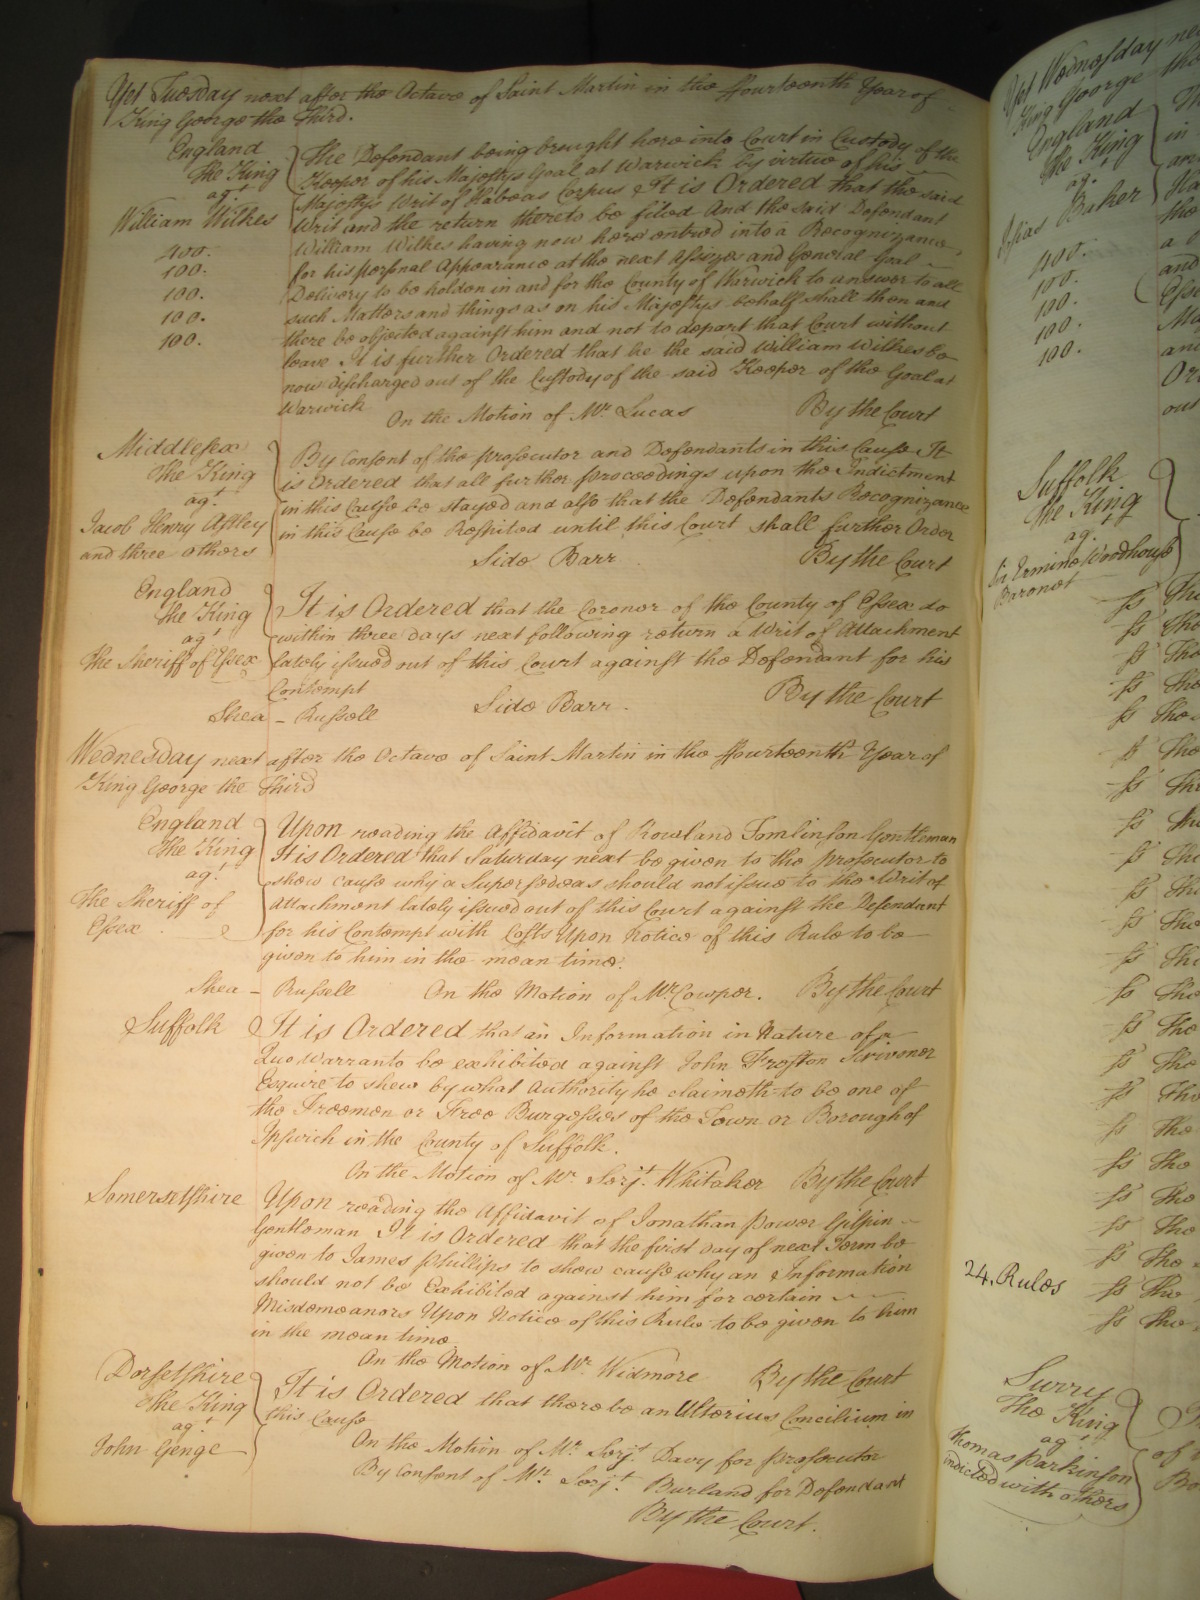 Yet Tuesday next after the Octave of Saint Martin in the ffourteenth Year of
King George the Third.
England
The King
agt
William Wilkes
400.
100.
100.
100.
100.
The Defendant being brought here into Court in Custody of the
Keeper of his Majestys Goal at Warwick by virtue of his
Majestys Writ of Habeas Corpus It is Ordered that the said
Writ and the return thereto be filed And the said Defendant
William Wilkes having now here entred into a Recognizance
for his personal Appearance at the next Assizes and General Goal
Delivery to be holden in and for the County of Warwick to answer to all
such Matters and things as on his Majestys behalf shall then and
there be objected against him and not to depart that Court without
leave It is further Ordered that he the said William Wilkes be
now discharged out of the Custody of the said Keeper of the Goal at
Warwick
On the Motion of Mr Lucas By the Court
Middlesex
The King
agt
Jacob Henry Astley
and three others
By Consent of the prosecutor and Defendants in this Cause It
is Ordered that all further proceedings upon the Indictment
in this Cause be stayed and also that the Defendants Recognizance
in this Cause be Respited until this Court shall further Order
Side Barr By the Court
England
The King
agt
The Sheriff of Essex
It is Ordered that the Coroner of the County of Essex do
within three days next following return a Writ of Attachment
lately issued out of this Court against the Defendant for his
Contempt
Shea – Russell Side Barr. By the Court
Wednesday next after the Octave of Saint Martin in the ffourteenth Year of
King George the Third
England
The King
agt
The Sheriff of
Essex
Upon reading the Affidavit of Rowland Tomlinson Gentleman
It is Ordered that Saturday next be given to the prosecutor to
shew cause why a Supersedeas should not issue to the Writ of
Attachment lately issued out of this Court against the Defendant
for his Contempt with Costs Upon Notice of this Rule to be
given to him in the mean time.
Shea – Russell On the Motion of Mr Cowper. By the Court
Suffolk
It is Ordered that an Information in Nature of a
Quo Warranto be exhibited against John Froston Scrivener
Esquire to shew by what Authority he claimeth to be one of
the Freemen or Free Burgesses of the Town or Borough of
Ipswich in the County of Suffolk.
On the Motion of Mr Serjt Whitaker By the Court
Somersetshire
Upon reading the Affidavit of Jonathan Power Gilpin
Gentleman It is Ordered that the first day of next Term be
given to James Phillips to shew cause why an Information
should not be Exhibited against him for certain
Misdemeanors Upon Notice of this Rule to be given to him
in the mean time
On the Motion of Mr Widmore By the Court
Dorsetshire
The King
agt
John Genge
It is Ordered that there be an Ulterius Concilium in
this Cause
On the Motion of Mr Serjt Davy for prosecutor
By Consent of Mr Serjt Burland for Defendant
By the Court.
Yet Wednesday
King George the
England
The King
agt
Baker
400.
100.
100.
100.
100.
Suffolk
The King
agt
Sir Ermine Woodhouse
Baronet
24. Rules
Surry
The King
agt
Thomas Parkinson
indicted with others